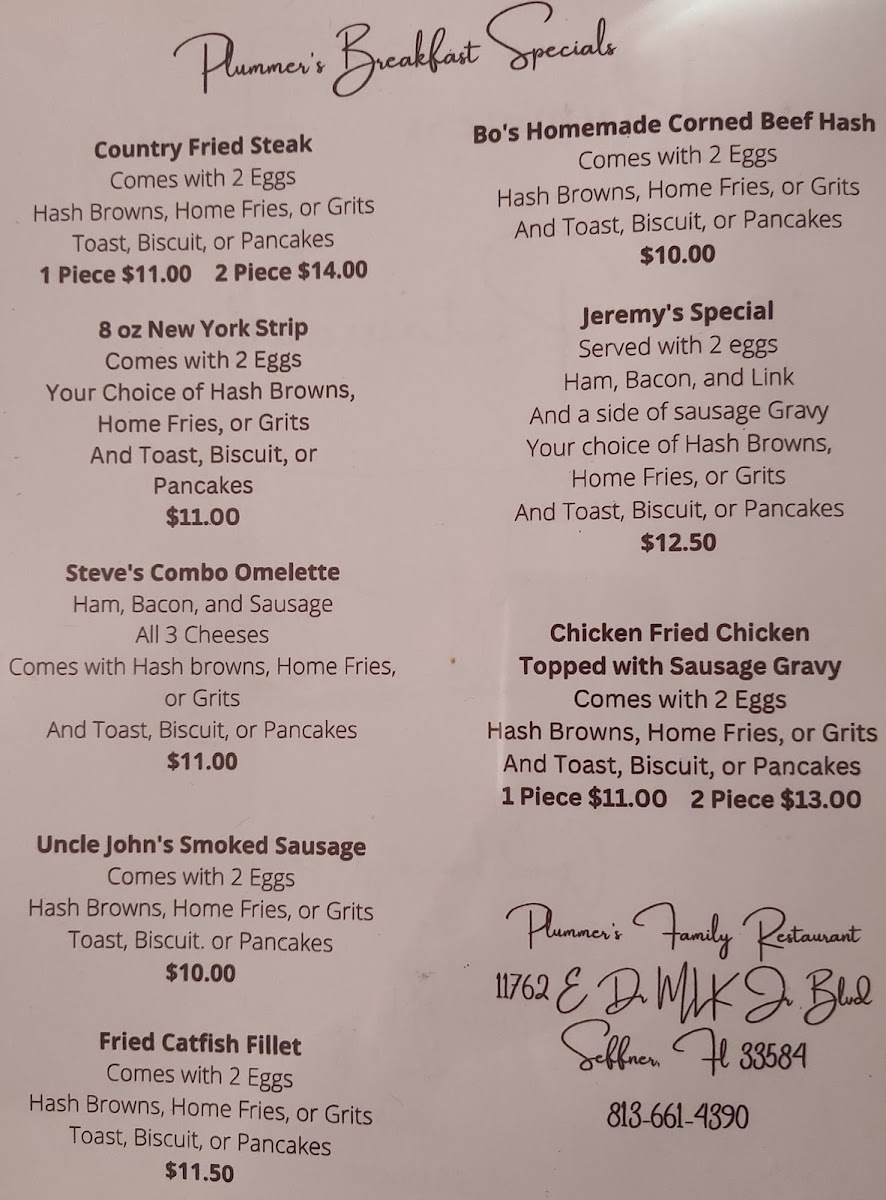 Plummer's Breakfast Specials
Country Fried Steak
Comes with 2 Eggs
Hash Browns, Home Fries, or Grits
Toast, Biscuit, or Pancakes
1 Piece $11.00 2 Piece $14.00
8 oz New York Strip
Comes with 2 Eggs
Your Choice of Hash Browns,
Home Fries, or Grits
And Toast, Biscuit, or
Pancakes
$11.00
Steve's Combo Omelette
Ham, Bacon, and Sausage
All 3 Cheeses
Comes with Hash browns, Home Fries,
or Grits
And Toast, Biscuit, or Pancakes
$11.00
Uncle John's Smoked Sausage
Comes with 2 Eggs
Hash Browns, Home Fries, or Grits
Toast, Biscuit. or Pancakes
$10.00
Fried Catfish Fillet
Comes with 2 Eggs
Hash Browns, Home Fries, or Grits
Toast, Biscuit, or Pancakes
$11.50
Bo's Homemade Corned Beef Hash
Comes with 2 Eggs
Hash Browns, Home Fries, or Grits
And Toast, Biscuit, or Pancakes
$10.00
Jeremy's Special
Served with 2 eggs
Ham, Bacon, and Link
And a side of sausage Gravy
Your choice of Hash Browns,
Home Fries, or Grits
And Toast, Biscuit, or Pancakes
$12.50
Chicken Fried Chicken
Topped with Sausage Gravy
Comes with 2 Eggs
Hash Browns, Home Fries, or Grits
And Toast, Biscuit, or Pancakes
1 Piece $11.00 2 Piece $13.00
Plummer's Family Restaurant
11762 E Dr MLK Jr Blvd
Seffner, Fl 33584
813-661-4390